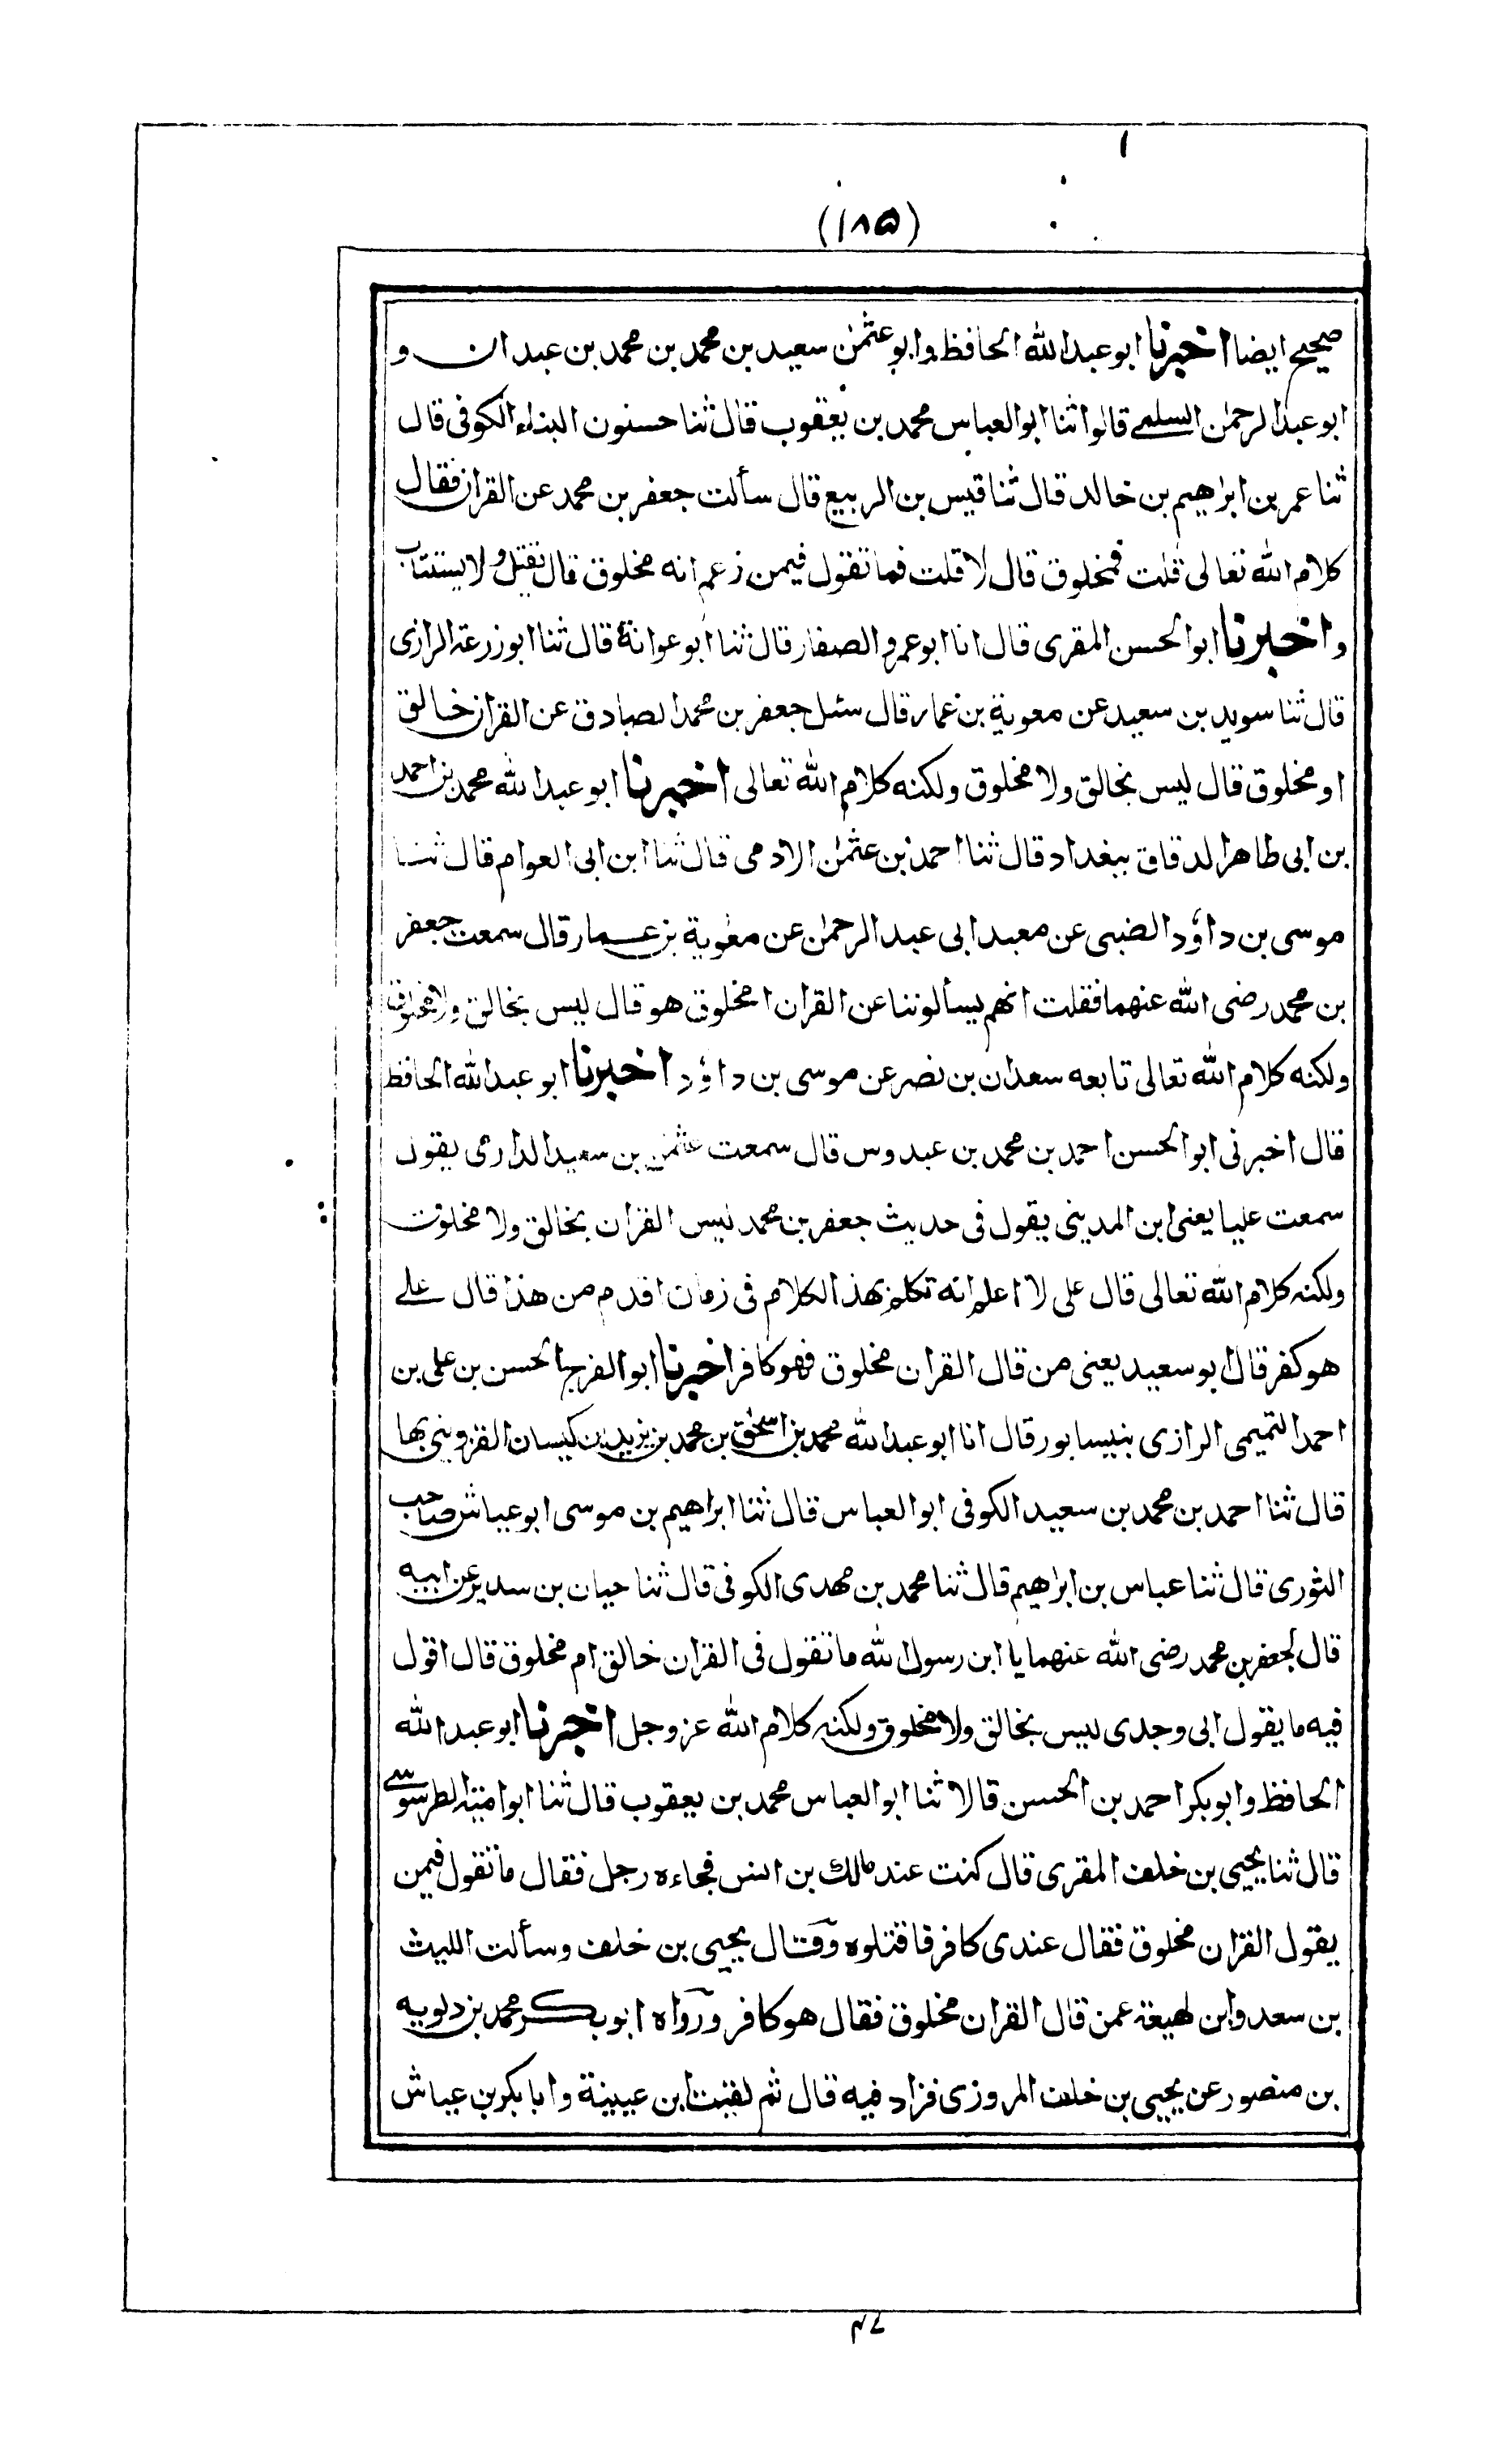 (۱۸۵)
صحيح ايضا اخبرنا ابو عبد الله الحافظ وابو عثمٰن سعيد بن محمد بن محمد بن عبدان و
ابو عبد الرحمٰن السلمے قالوا ثنا ابو العباس محمد بن يعقوب قال ثنا حسنون البناء الكوفى قال
ثنا عمر بن ابراهيم بن خالد قال ثنا قيس بن الربيع قال سألت جعفر بن محمد عن القرأن فقال
كلام الله تعالى قلت فمخلوق قال لا قلت فما تقول فيمن زعم انه مخلوق قال يقتل ولا يستتاب
واخبرنا ابو الحسن المقرى قال انا ابو عمرو الصفار قال ثنا ابو عوانة قال ثنا ابو زرعة الرازى
قال ثنا سويد بن سعيد عن معوية بن عمار قال سئل جعفر بن محمد الصادق عن القران خالق
او مخلوق قال ليس بخالق ولا مخلوق ولكنه كلام الله تعالى اخبرنا ابو عبد الله محمد بن احمد
بن ابى طاهر الدقاق ببغداد قال ثنا احمد بن عثمٰن الادمى قال ثنا ابن ابى العوام قال ثنا
موسى بن داوٗد الضبى عن معبد ابى عبد الرحمٰن عن معٰوية بن عمار قال سمعت جعفر
بن محمد رضى الله عنهما فقلت انهم يسألوننا عن القران امخلوق هو قال ليس بخالق ولا مخلوق
ولكنه كلام الله تعالى تابعه سعدان بن نصر عن موسى بن داوٗد اخبرنا ابو عبد الله الحافظ
قال اخبرنى ابو الحسن احمد بن محمد بن عبدوس قال سمعت عثمٰن بن سعيد الدارى يقول
سمعت عليا يعنى ابن المدينى يقول فى حديث جعفر بن محمد ليس القران بخالق ولا مخلوق
ولكنه كلام الله تعالى قال على لا اعلم انه تكلم بهذا الكلام فى زمان اقدم من هذا قال علے
هو كفر قال ابو سعيد يعنى من قال القران مخلوق فهو كافر اخبرنا ابو الفرج الحسن بن على بن
احمد التميمى الرازى بنيسابور قال انا ابو عبد الله محمد بن اسحٰق بن محمد بن يزيد بن كيسان القزوينى بها
قال ثنا احمد بن محمد بن سعيد الكوفى ابو العباس قال ثنا ابراهيم بن موسى ابو عياش صاحب
الثورى قال ثنا عباس بن ابراهيم قال ثنا محمد بن مهدى الكوفى قال ثنا حيان بن سدير عن ابيه
قال لجعفر بن محمد رضى الله عنهما يا ابن رسول الله ما تقول فى القران خالق ام مخلوق قال اقول
فيه ما يقول ابى وجدى ليس بخالق ولا مخلوق ولكنه كلام الله عز وجل اخبرنا ابو عبد الله
الحافظ وابو بكر احمد بن الحسن قالا ثنا ابو العباس محمد بن يعقوب قال ثنا ابو امية الطرسوسے
قال ثنا يحيى بن خلف المقرى قال كنت عند مالك بن انس فجاءه رجل فقال ما تقول فيمن
يقول القران مخلوق فقال عندى كافر فاقتلوه وقال يحيى بن خلف وسألت الليث
بن سعد وابن لهيعة عمن قال القران مخلوق فقال هو كافر ورواه ابو بكر محمد بن دلويه
بن منصور عن يحيى بن خلف المروزى فزاد فيه قال ثم لقيت ابن عيينة وابا بكر بن عياش